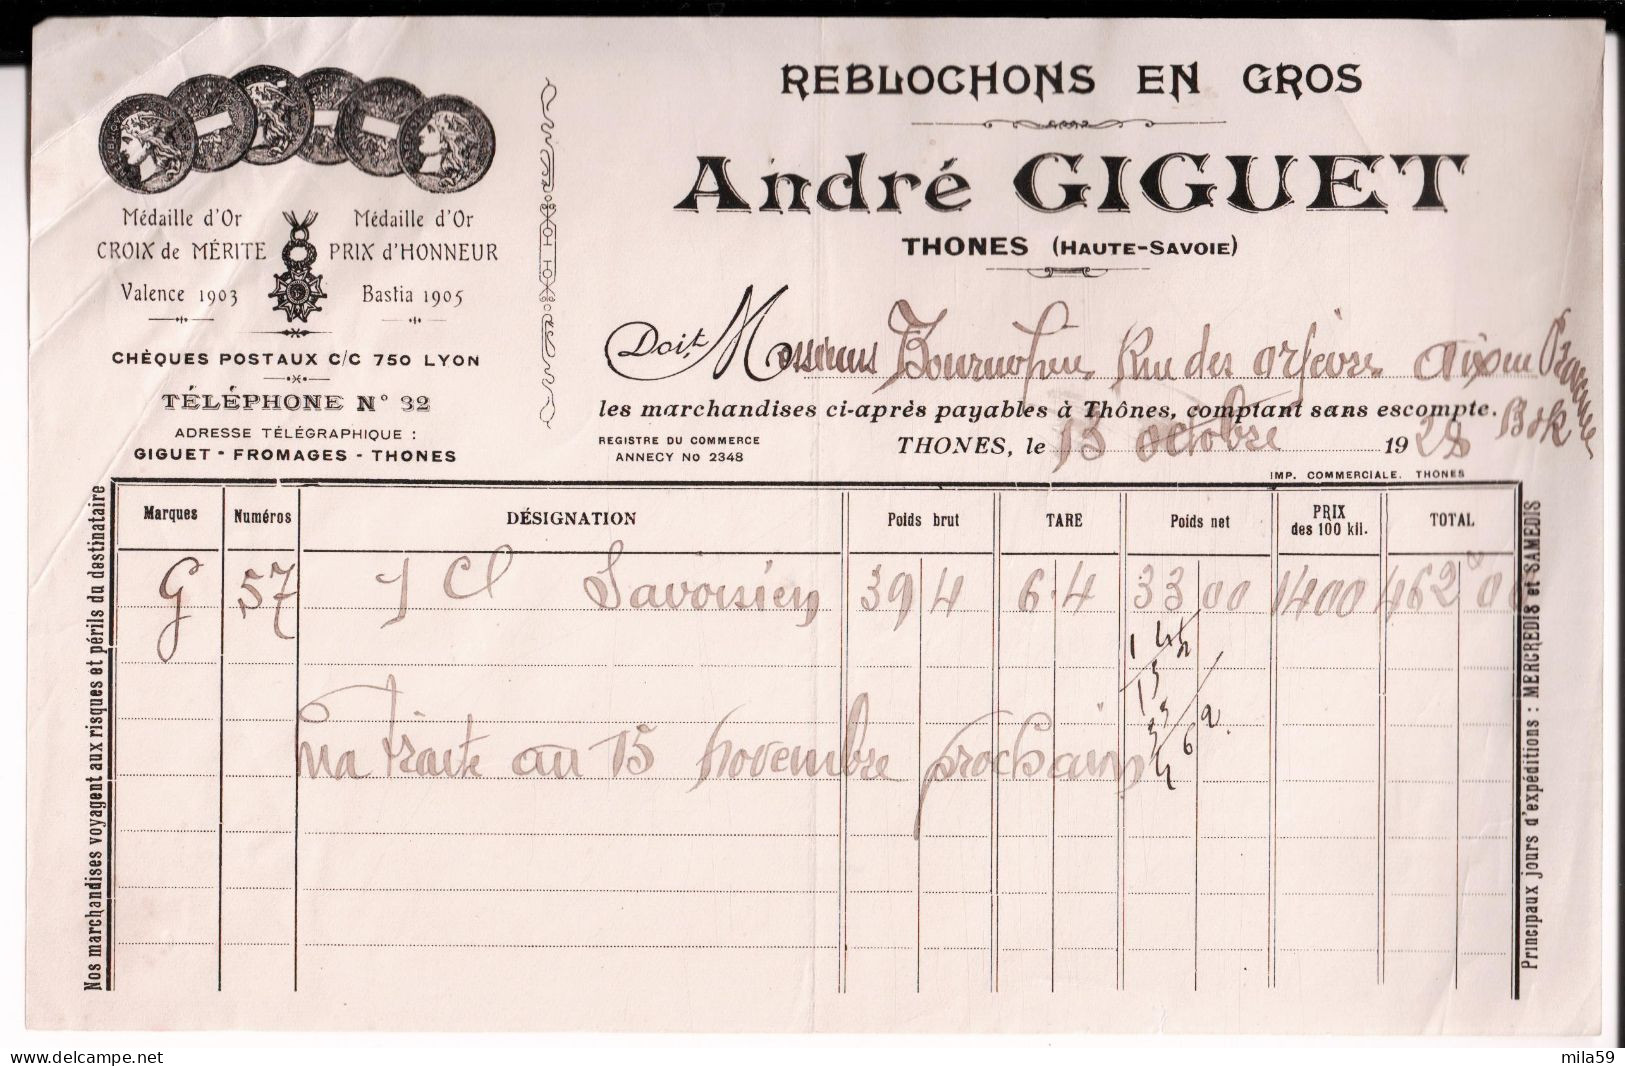 REBLOCHONS EN GROS
André GIGUET
THONES (HAUTE-SAVOIE)
Médaille d'Or
CROIX de MÉRITE
Valence 1903
Médaille d'Or
PRIX d'HONNEUR
Bastia 1905
CHÈQUES POSTAUX C/C 750 LYON
TÉLÉPHONE N° 32
ADRESSE TÉLÉGRAPHIQUE :
GIGUET - FROMAGES - THONES
Doit Messieurs Rue des orfèvres aix en Provence
les marchandises ci-après payables à Thônes, comptant sans escompte.
REGISTRE DU COMMERCE
ANNECY NO 2348
THONES, le 13 octobre 1928
IMP. COMMERCIALE. THONES
Nos marchandises voyagent aux risques et périls du destinataire
Marques Numéros DÉSIGNATION Poids brut TARE Poids net PRIX des 100 kil. TOTAL
G 57 1 Cl Savoisien 39 4 6.4 33 00 1400 462 00
ma traite au 15 novembre prochain
Principaux jours d'expéditions : MERCREDIS et SAMEDIS
mila59